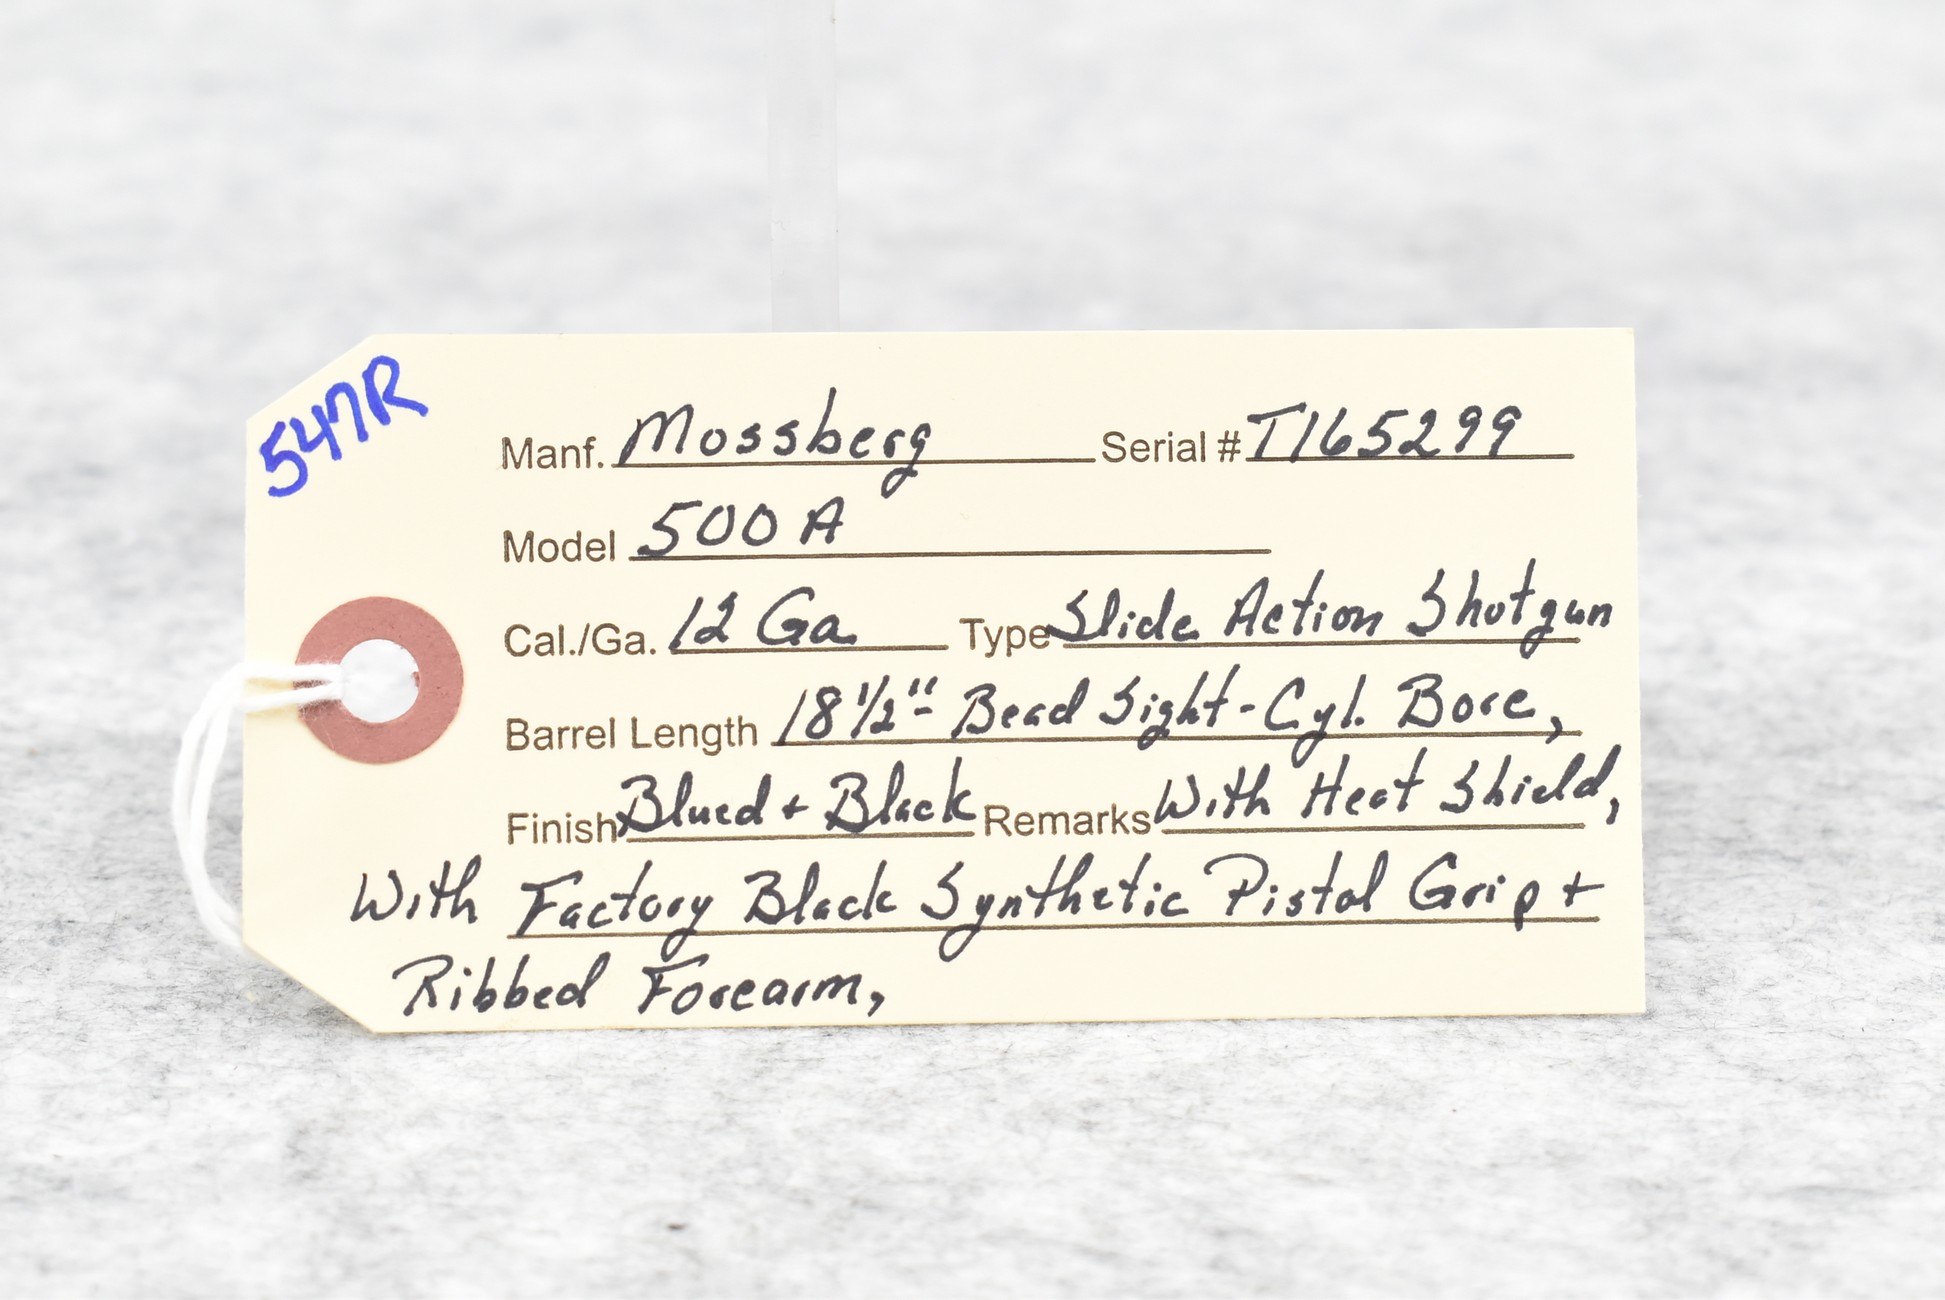 547R
Manf. Mossberg Serial # T165299
Model 500 A
Cal./Ga. 12 Ga. Type Slide Action Shotgun
Barrel Length 18 1/2" - Bead Sight - Cyl. Bore,
Finish Blued + Black Remarks With Heat Shield,
With Factory Black Synthetic Pistol Grip +
Ribbed Forearm,